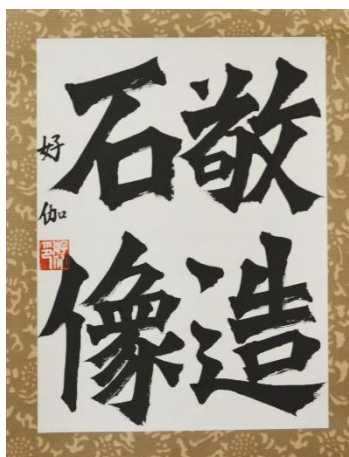 敬造
石像
好伽